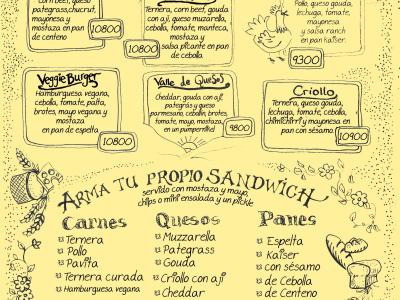 corn beef, queso
pategras, chucrut,
mayonesa y
mostaza en pan
de centeno
10800
Ternera, corn beef, gouda
con ají, queso muzarella,
cebolla, tomate, manteca,
mostaza y
salsa picante en pan
de cebolla
10800
Pollo, queso gouda,
lechuga, tomate,
mayonesa
y salsa ranch
en pan kaiser.
9300
Veggie Burger
Hamburguesa vegana,
cebolla, tomate, palta,
brotes, mayo vegana y
mostaza
en pan de espelta
10800
Valle de Quesos
Cheddar, gouda con ají,
pategrás y queso
parmesano, cebollín, brotes,
tomate, mayo, mostaza
en un pumpernikel
9800
Criollo
Ternera, queso gouda,
lechuga, tomate, cebolla,
chimichirri y mayonesa en
pan con sésamo.
10900
ARMA TU PROPIO SANDWICH
servido con mostaza y mayo,
chips o mini ensalada y un pickle
Carnes
Ternera
Pollo
Pavita
Ternera curada
Hamburguesa vegana
Quesos
Muzzarella
Pategrass
Gouda
Criollo con ají
Cheddar
Panes
Espelta
Kaiser
con sésamo
de Cebolla
de Centeno